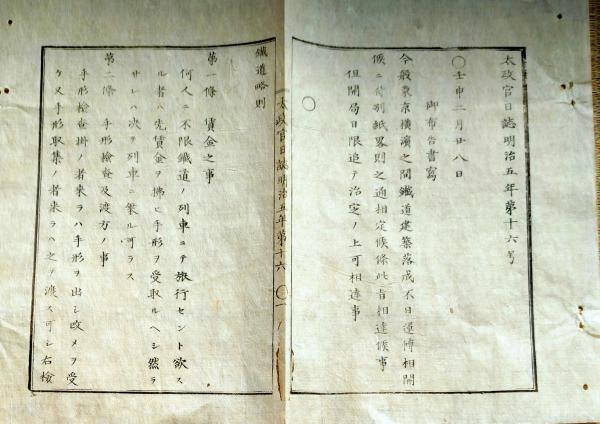 太政官日誌明治五年第十六号
〇壬申二月廿八日
御布告書寫
今般東京横濱之間鐵道建築落成不日運轉相開
候ニ付別紙畧則之通相定候條此旨相達候事
但開局日限追テ治定ノ上可相達事
太政官日誌明治五年第十六
鐵道略則
第一條 賃金之事
何人ニ不限鐵道ノ列車ニテ旅行セント欲ス
ル者ハ先賃金ヲ拂ヒ手形ヲ受取ルヘシ然ラ
サレハ決テ列車ニ乗ル可ラス
第二條 手形檢査及渡方ノ事
手形檢査掛ノ者来ラハ手形ヲ出シ改メヲ受
ケ又手形取集ノ者来ラハ之ヲ渡ス可シ右檢